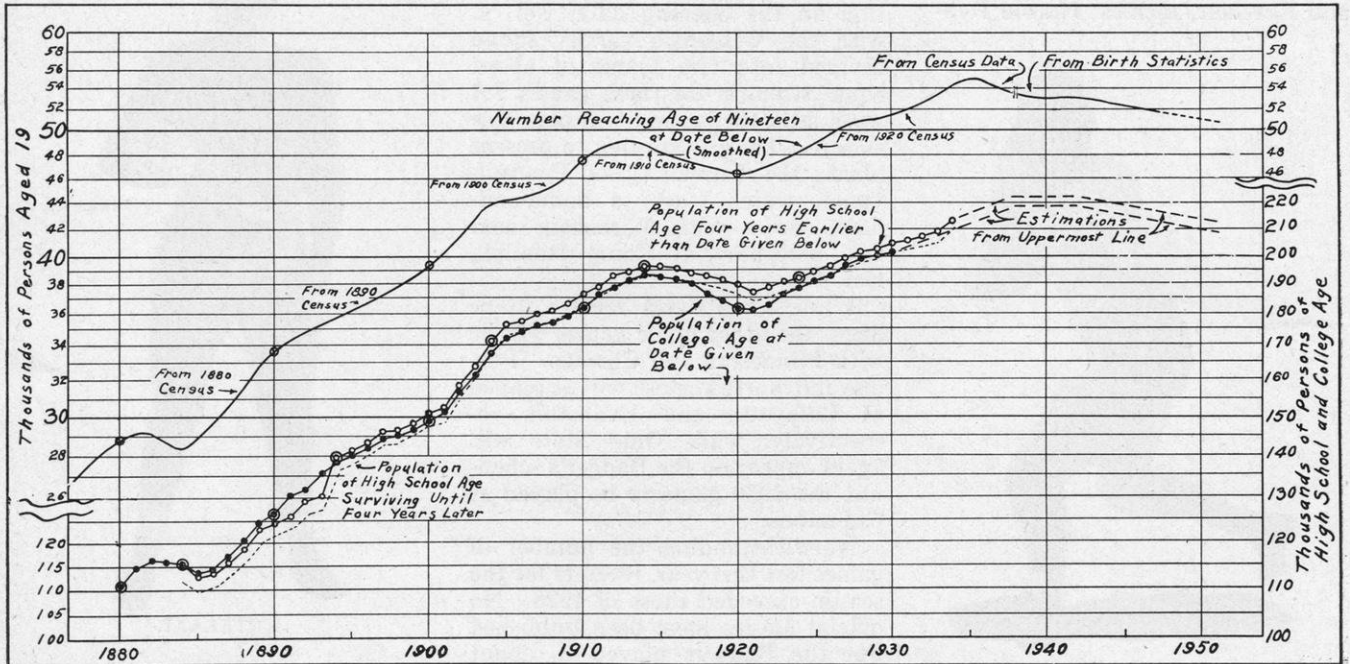 60
58
56
54
52
50
48
46
44
42
40
38
36
34
32
30
28
26
120
115
110
105
100
Thousands of Persons Aged 19
From Census Data
From Birth Statistics
Number Reaching Age of Nineteen
at Date Below
(Smoothed)
From 1920 Census
From 1910 Census
From 1900 Census
From 1890
Census
From 1880
Census
Population of High School
Age Four Years Earlier
than Date Given Below
Estimations
from Uppermost Line
Population of
College Age at
Date Given
Below
Population
of High School Age
Surviving Until
Four Years Later
60
58
56
54
52
50
48
46
220
210
200
190
180
170
160
150
140
130
120
110
100
Thousands of Persons of
High School and College Age
1880
1890
1900
1910
1920
1930
1940
1950